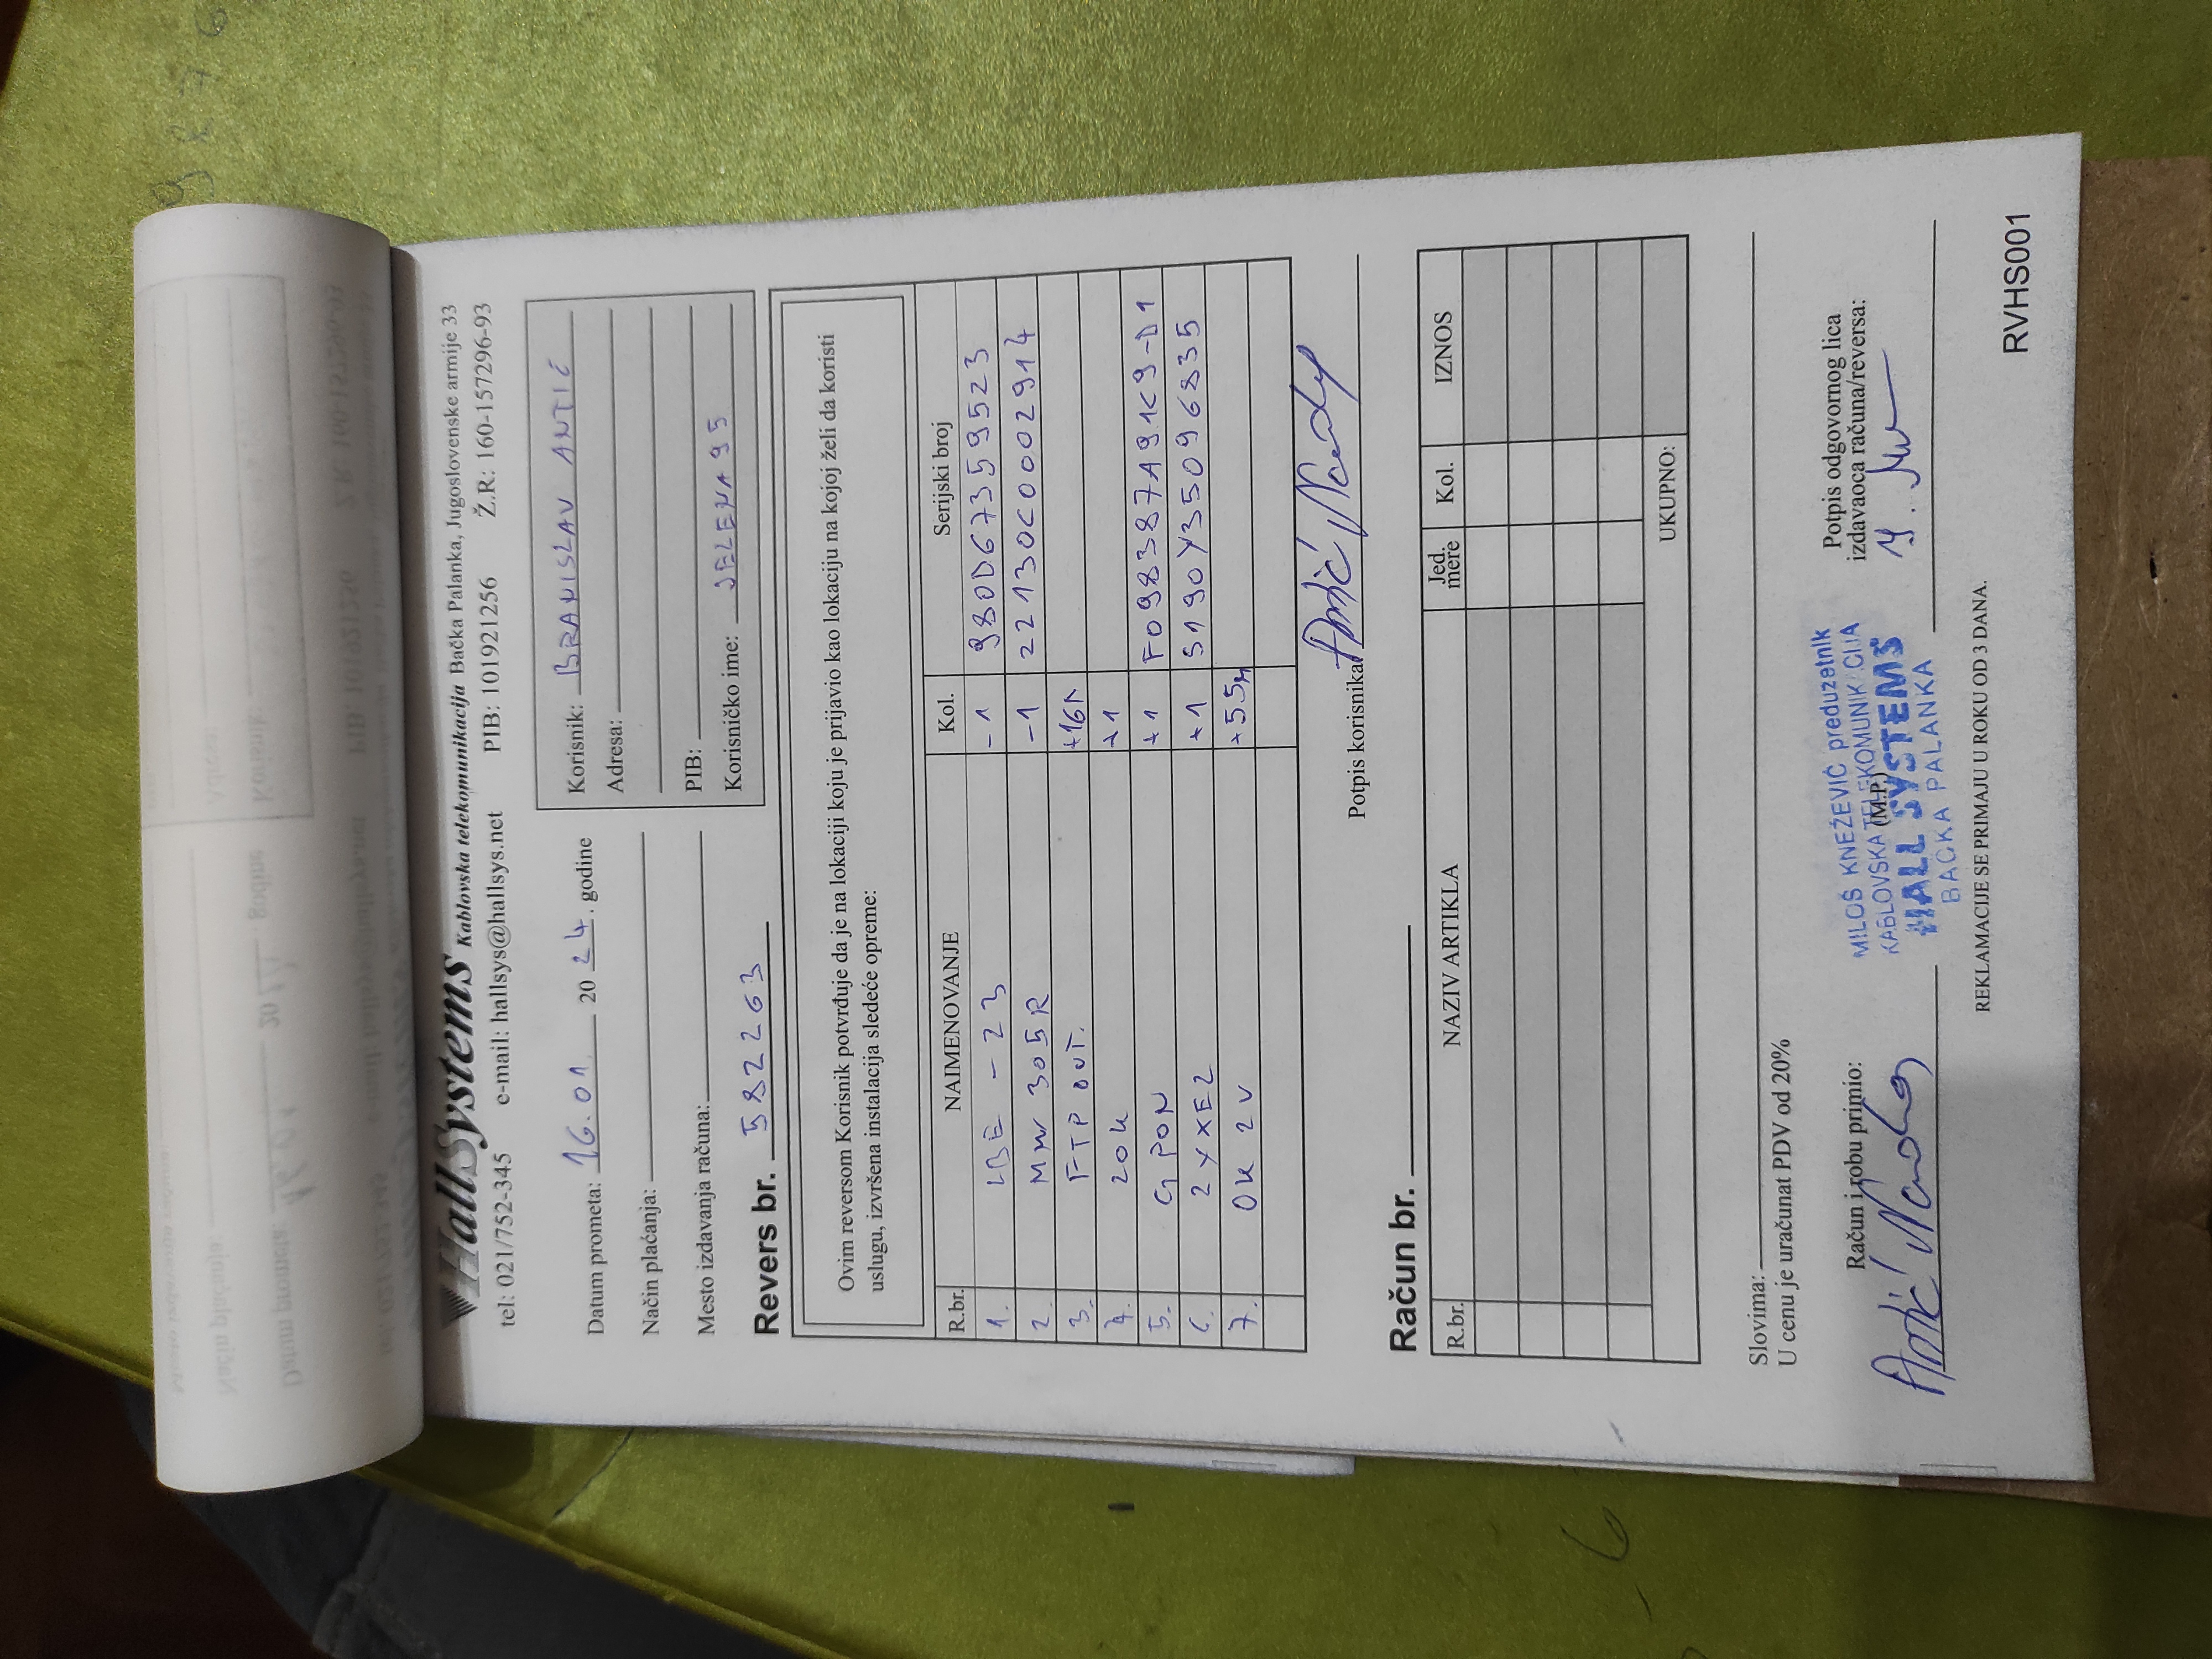 HallSystems Kablovska telekomunikacija Bačka Palanka, Jugoslovenske armije 33
tel: 021/752-345 e-mail: hallsys@hallsys.net PIB: 101921256 Ž.R: 160-1557296-93
Datum prometa: 16.01. 2024. godine
Način plaćanja:
Mesto izdavanja računa:
Korisnik: BRANISLAV ANTIĆ
Adresa:
PIB:
Korisničko ime: JELENA95
Revers br. 582263
Ovim reversom Korisnik potvrđuje da je na lokaciji koju je prijavio kao lokaciju na kojoj želi da koristi
uslugu, izvršena instalacija sledeće opreme:
R.br. NAIMENOVANJE Kol. Serijski broj
1. LBE - 23 -1 980D67359523
2. MW 305R -1 22130C0002914
3. FTP OUT.
4. 20K +1
5. GPON +1 F098387A91K9-D1
6. 2YXE2 +1 S190Y35096835
7. OK 2V +55m
Potpis korisnika
Antić
Račun br.
R.br. NAZIV ARTIKLA Jed. mere Kol. IZNOS
UKUPNO:
Slovima:
U cenu je uračunat PDV od 20%
Račun i robu primio:
Antić
MILOŠ KNEŽEVIĆ preduzetnik
KABLOVSKA TELEKOMUNIKACIJA
(M.P.)
HALL SYSTEMS
BAČKA PALANKA
Potpis odgovornog lica
izdavaoca računa/reversa:
REKLAMACIJE SE PRIMAJU U ROKU OD 3 DANA.
RVHS001